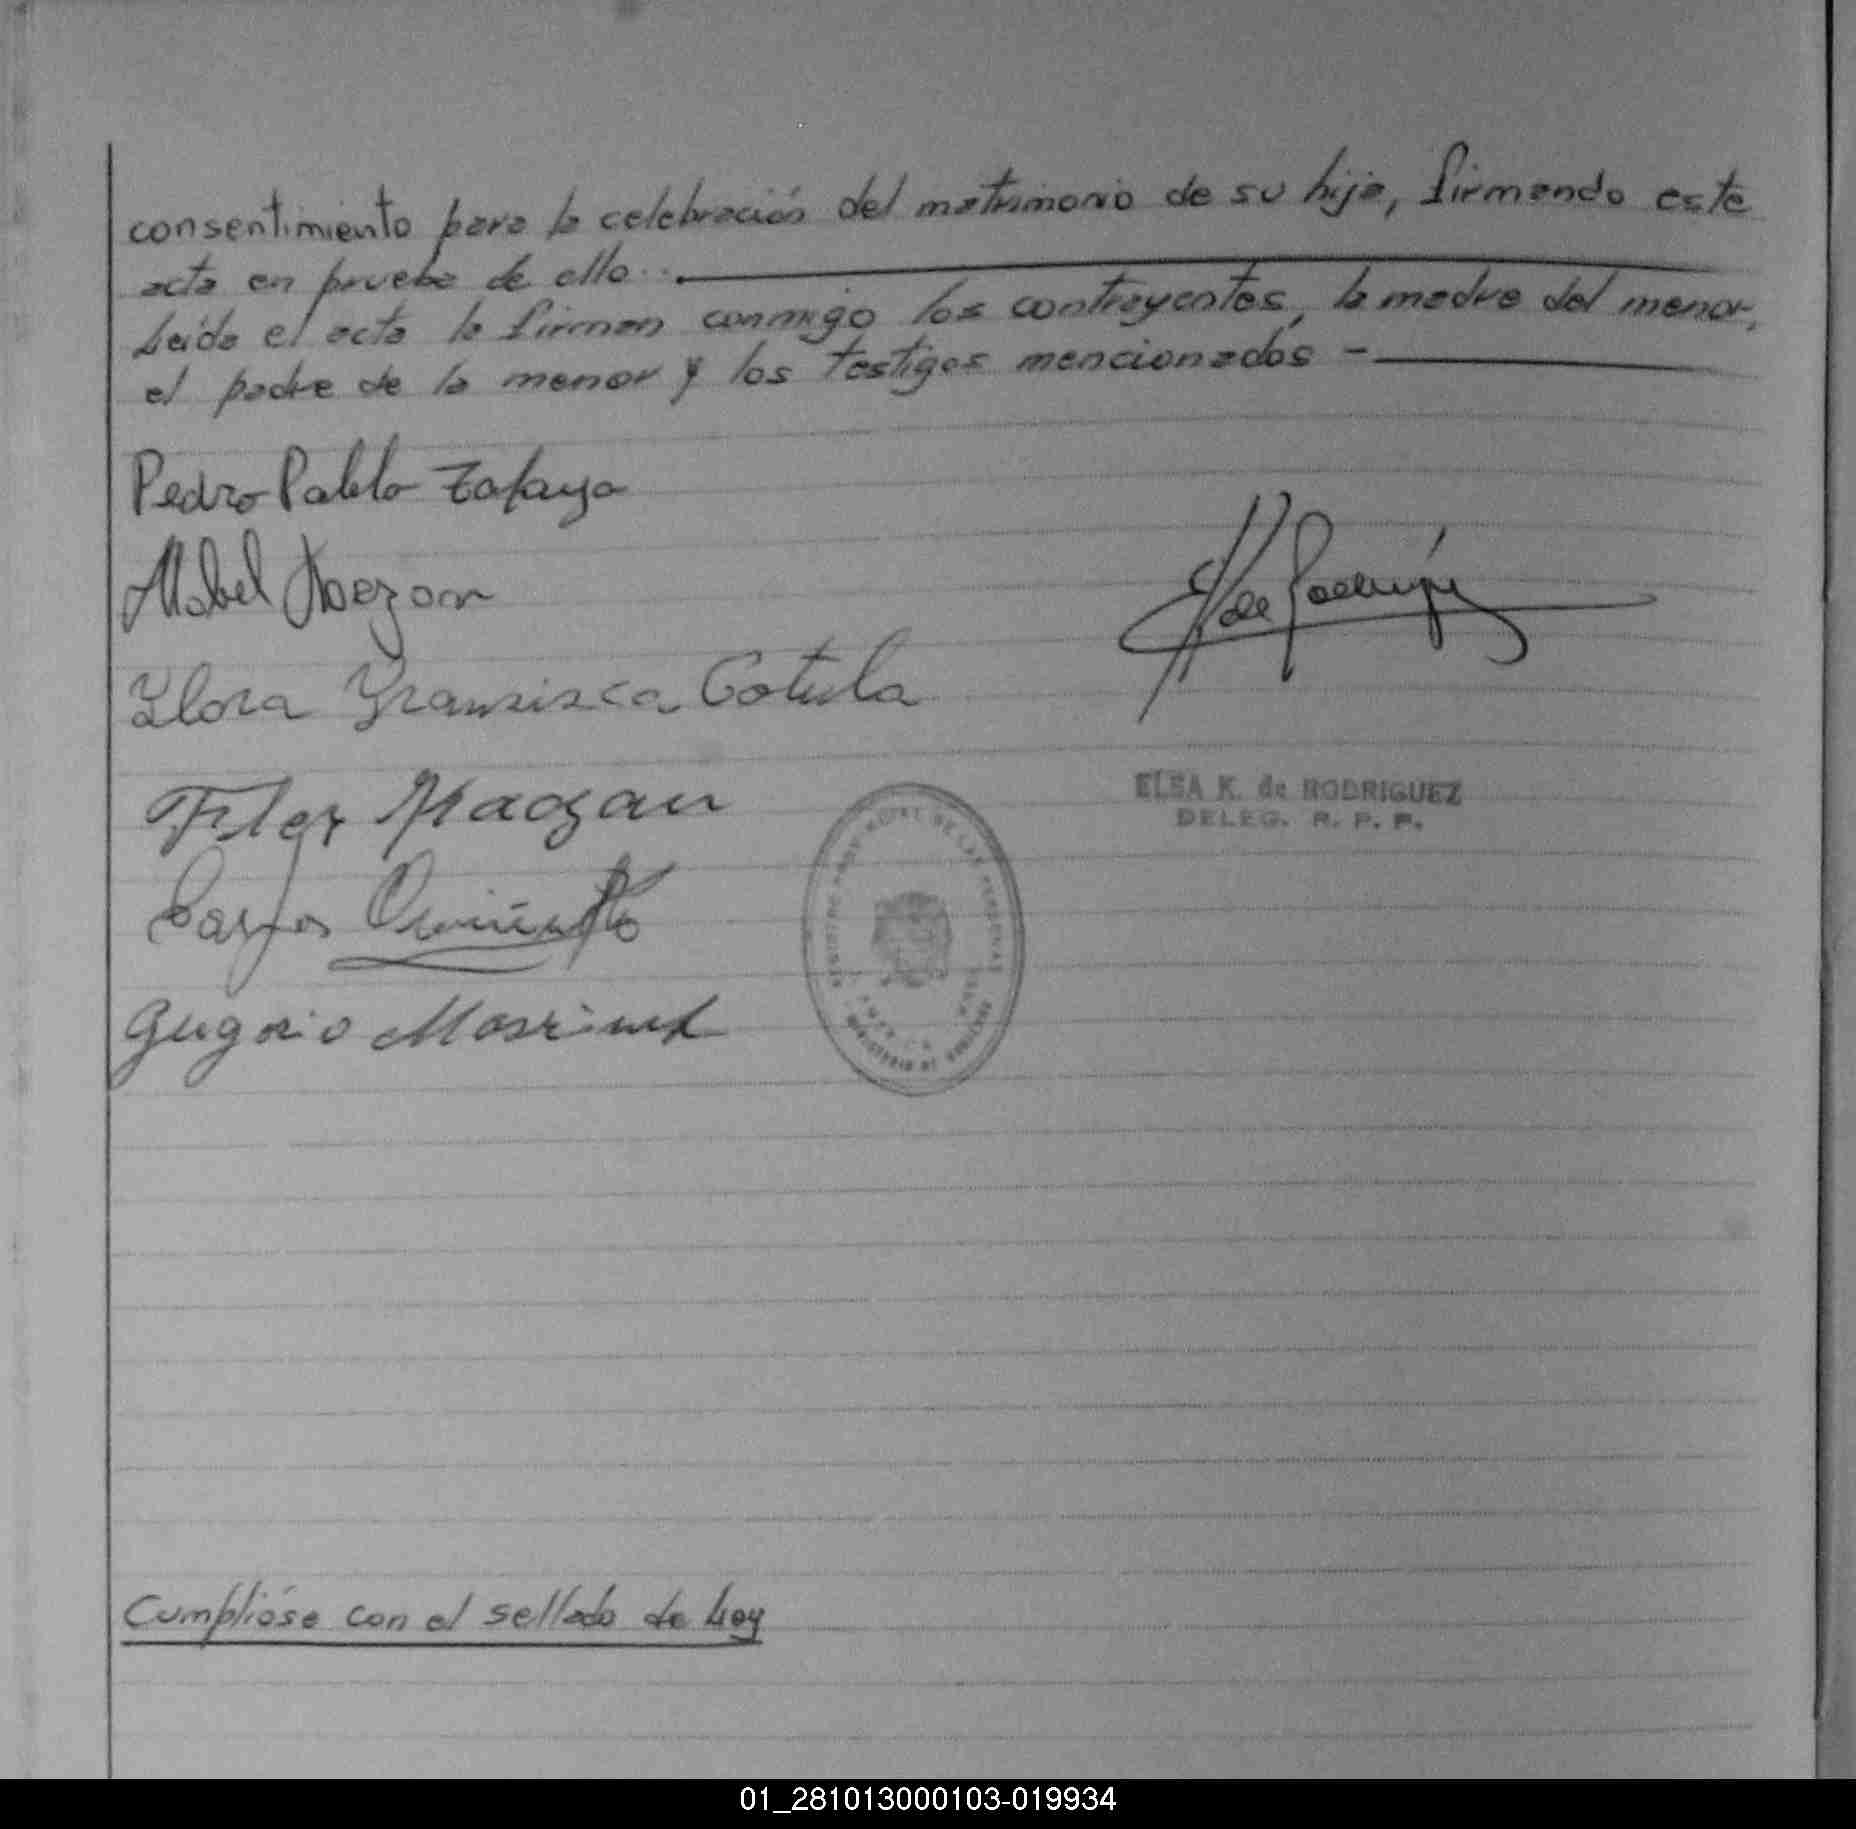 consentimiento para la celebración del matrimonio de su hija, firmando este
acta en prueba de ello..
Leída el acta la firman conmigo los contrayentes, la madre del menor,
el padre de la menor y los testigos mencionados -
Pedro Pablo
Mabel
Flora Fransisca Cotula
Carlos
E K de Rodríguez
ELSA K. de RODRIGUEZ
DELEG. R. P. P.
DE LAS PERSONAS
Cumplióse con el sellado de Ley
01_281013000103-019934